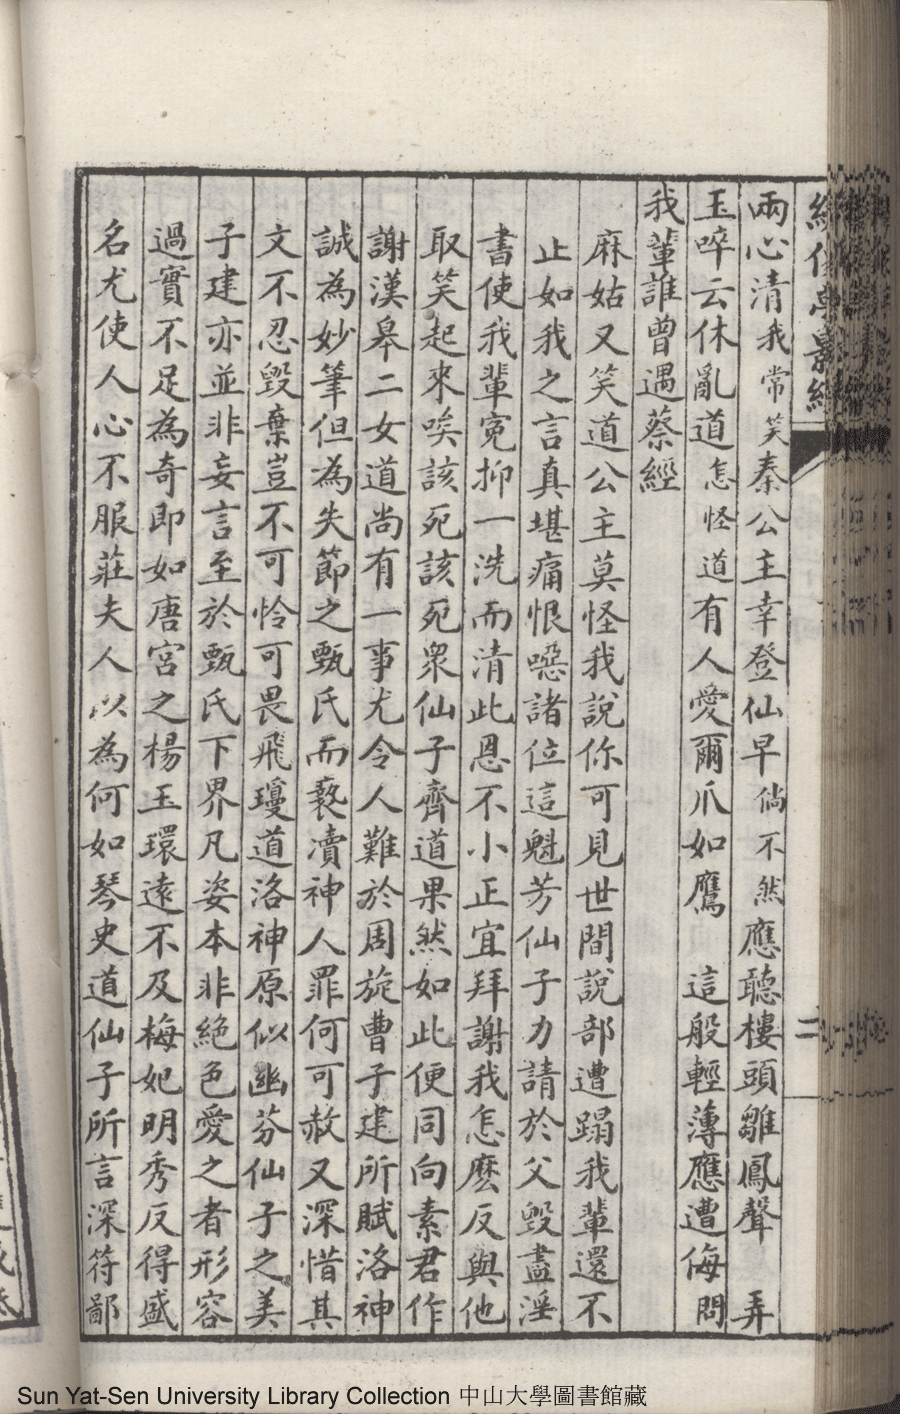 兩心清我常笑秦公主幸登仙早倘不然應聽樓頭雛鳳聲 弄
玉啐云休亂道怎怪道有人愛爾爪如鷹 這般輕薄應遭侮問
我輩誰曾遇蔡經
麻姑又笑道公主莫怪我說你可見世間說部遭蹋我輩還不
止如我之言真堪痛恨噁諸位這魁芳仙子力請於父毀盡淫
書使我輩寃抑一洗而清此恩不小正宜拜謝我怎麽反與他
取笑起來唉該死該死衆仙子齊道果然如此便同向素君作
謝漢皋二女道尚有一事尤令人難於周旋曹子建所賦洛神
誠為妙筆但為失節之甄氏而褻瀆神人罪何可赦又深惜其
文不忍毀棄豈不可怜可畏飛瓊道洛神原似幽芬仙子之美
子建亦並非妄言至於甄氏下界凡姿本非絕色愛之者形容
過實不足為奇即如唐宮之楊玉環遠不及梅妃明秀反得盛
名尤使人心不服莊夫人以為何如琴史道仙子所言深符鄙
二
Sun Yat-Sen University Library Collection 中山大學圖書館藏